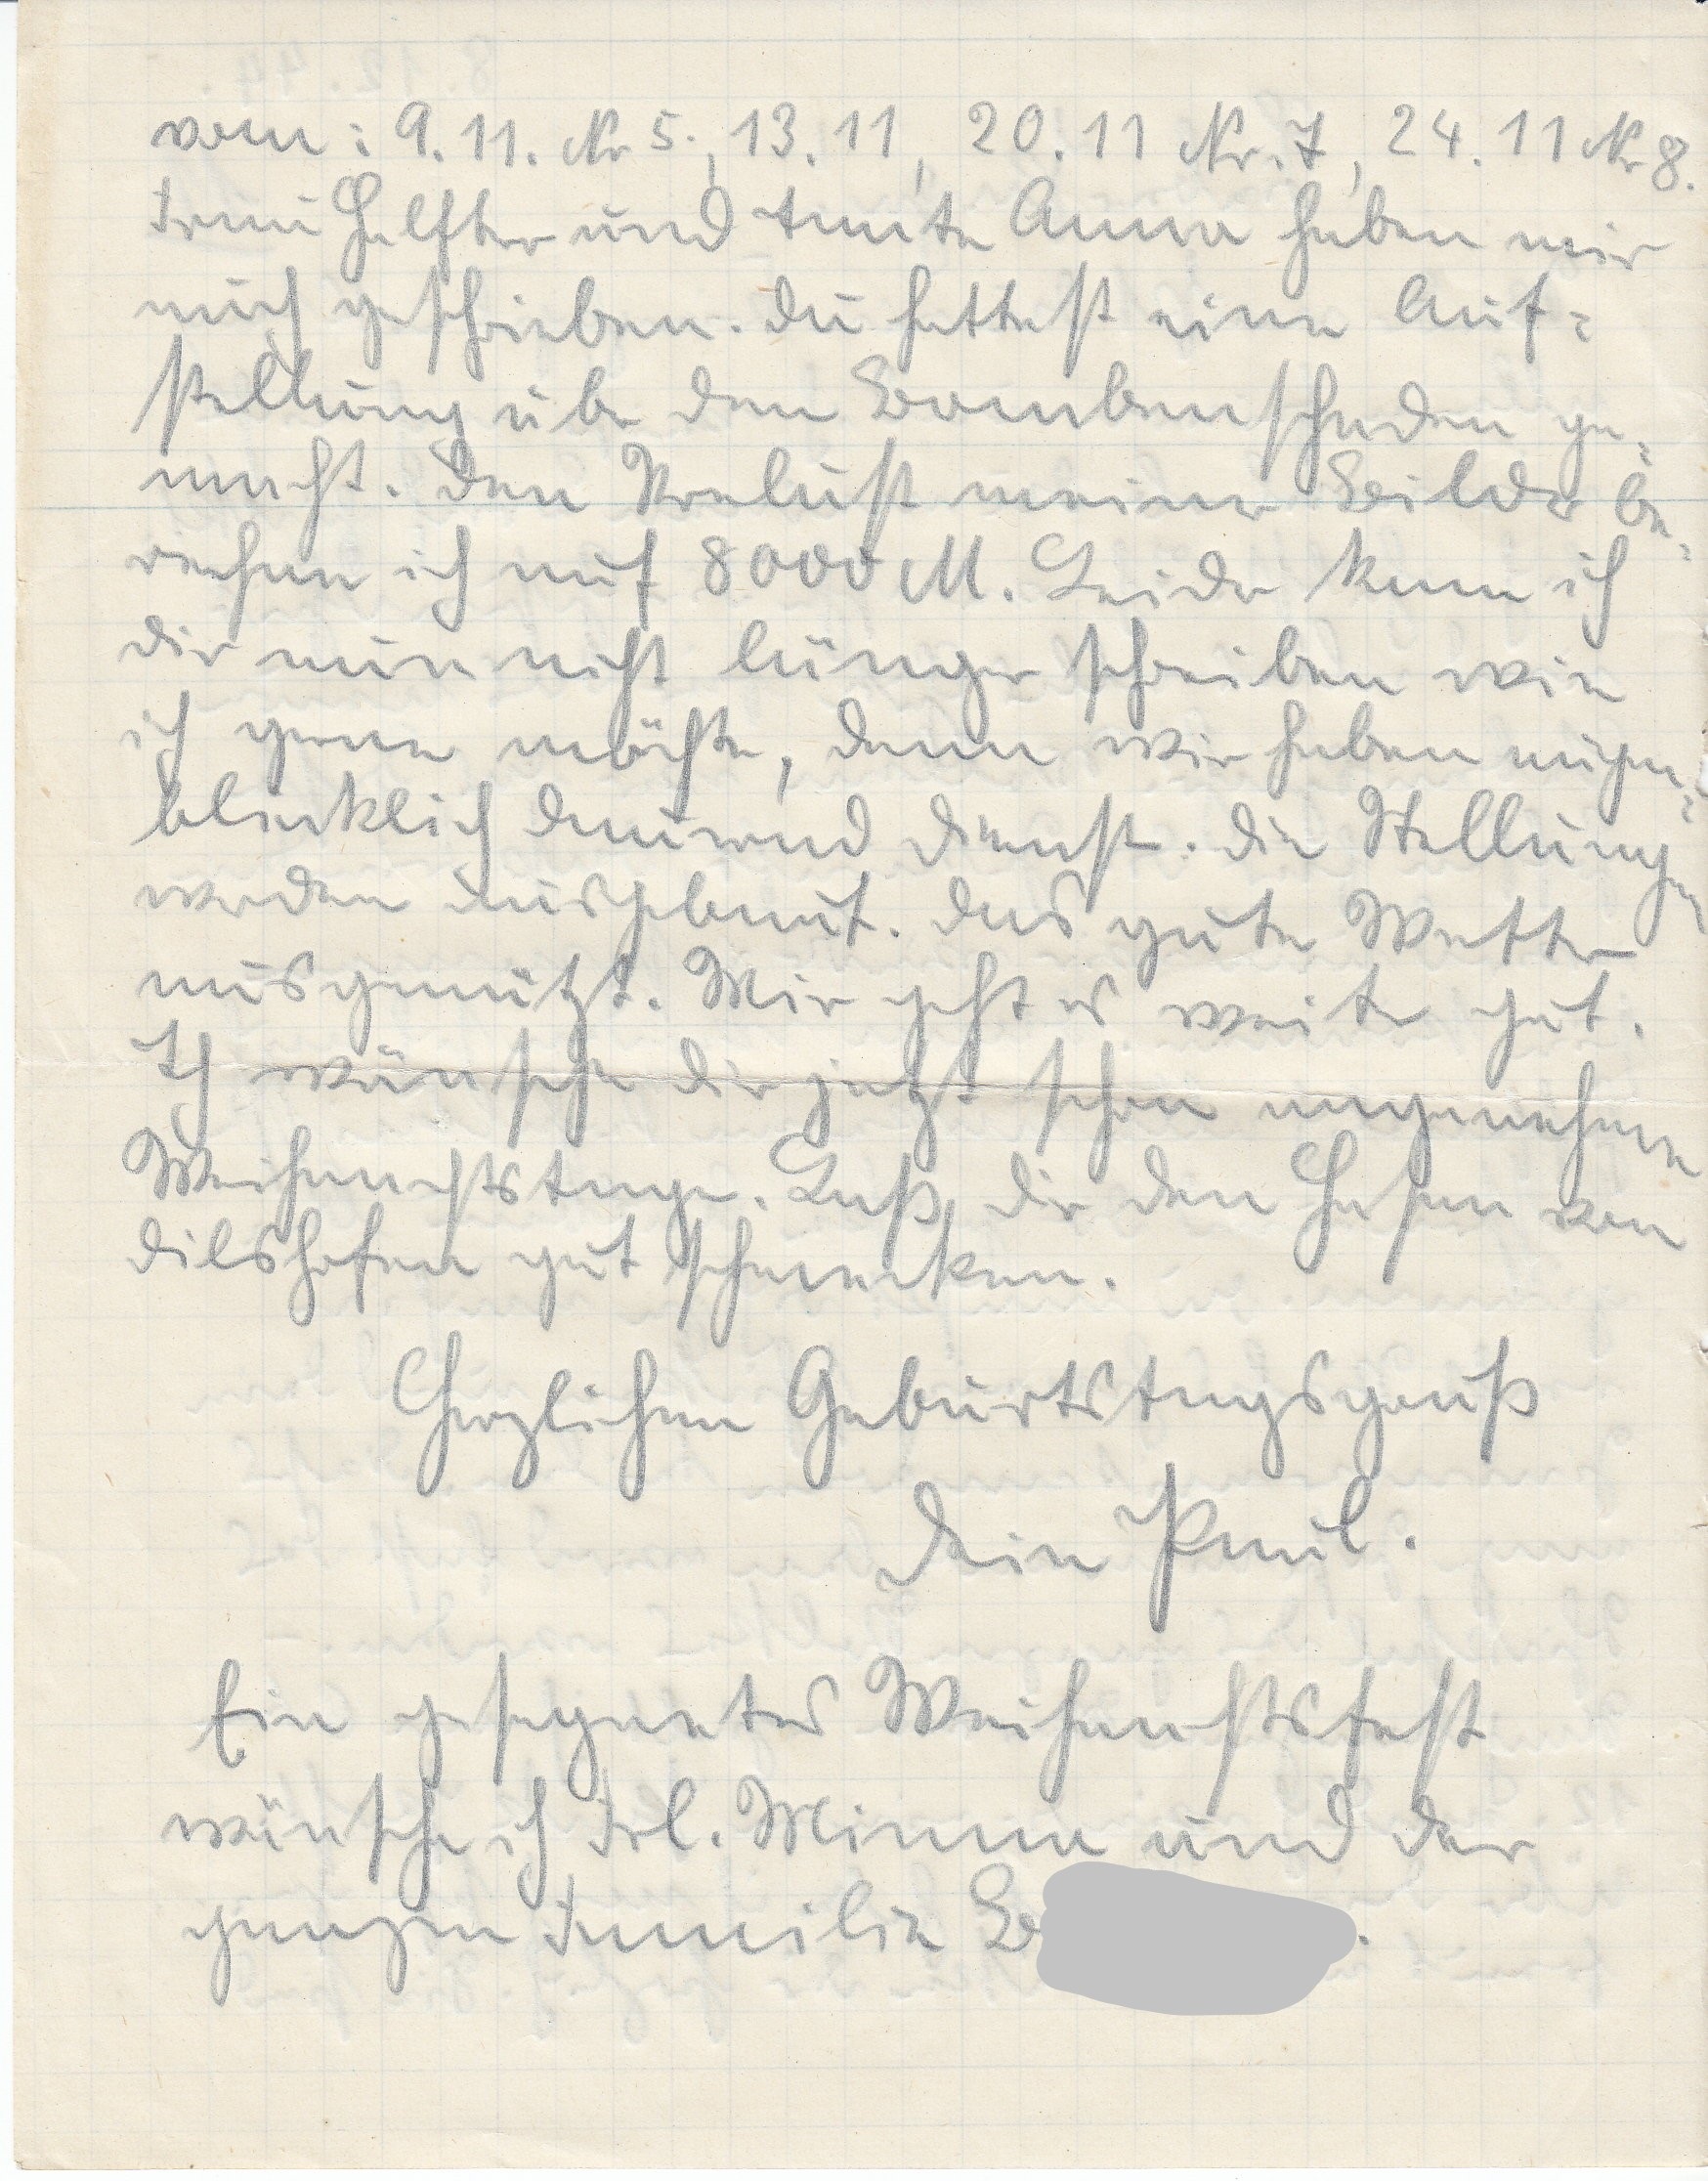 vom: 9.11. Nr 5., 13.11, 20.11 Nr. 7, 24.11 Nr 8.
Frau Helfter und Tante Anna haben mir
auch geschrieben. Du hattest eine Auf=
stellung über den Bombenschaden ge=
macht. Den Verlust meiner Bilder be=
rechne ich auf 8000 M. Leider kann ich
dir nun nicht länger schreiben wie
ich gerne möchte, denn wir haben augen=
blicklich dauernd Dienst. Die Stellungen
werden ausgebaut. Das gute Wetter
ausgenützt. Mir geht es weiter gut.
Ich wünsche dir jetzt schon angenehme
Weihnachtstage. Laß dir den Hasen von
Dilshofen gut schmecken.
Herzlichen Geburtstagsgruß
Dein Paul.
Ein gesegnetes Weihnachtsfest
wünsche ich Frl. Minna und der
ganzen Familie B